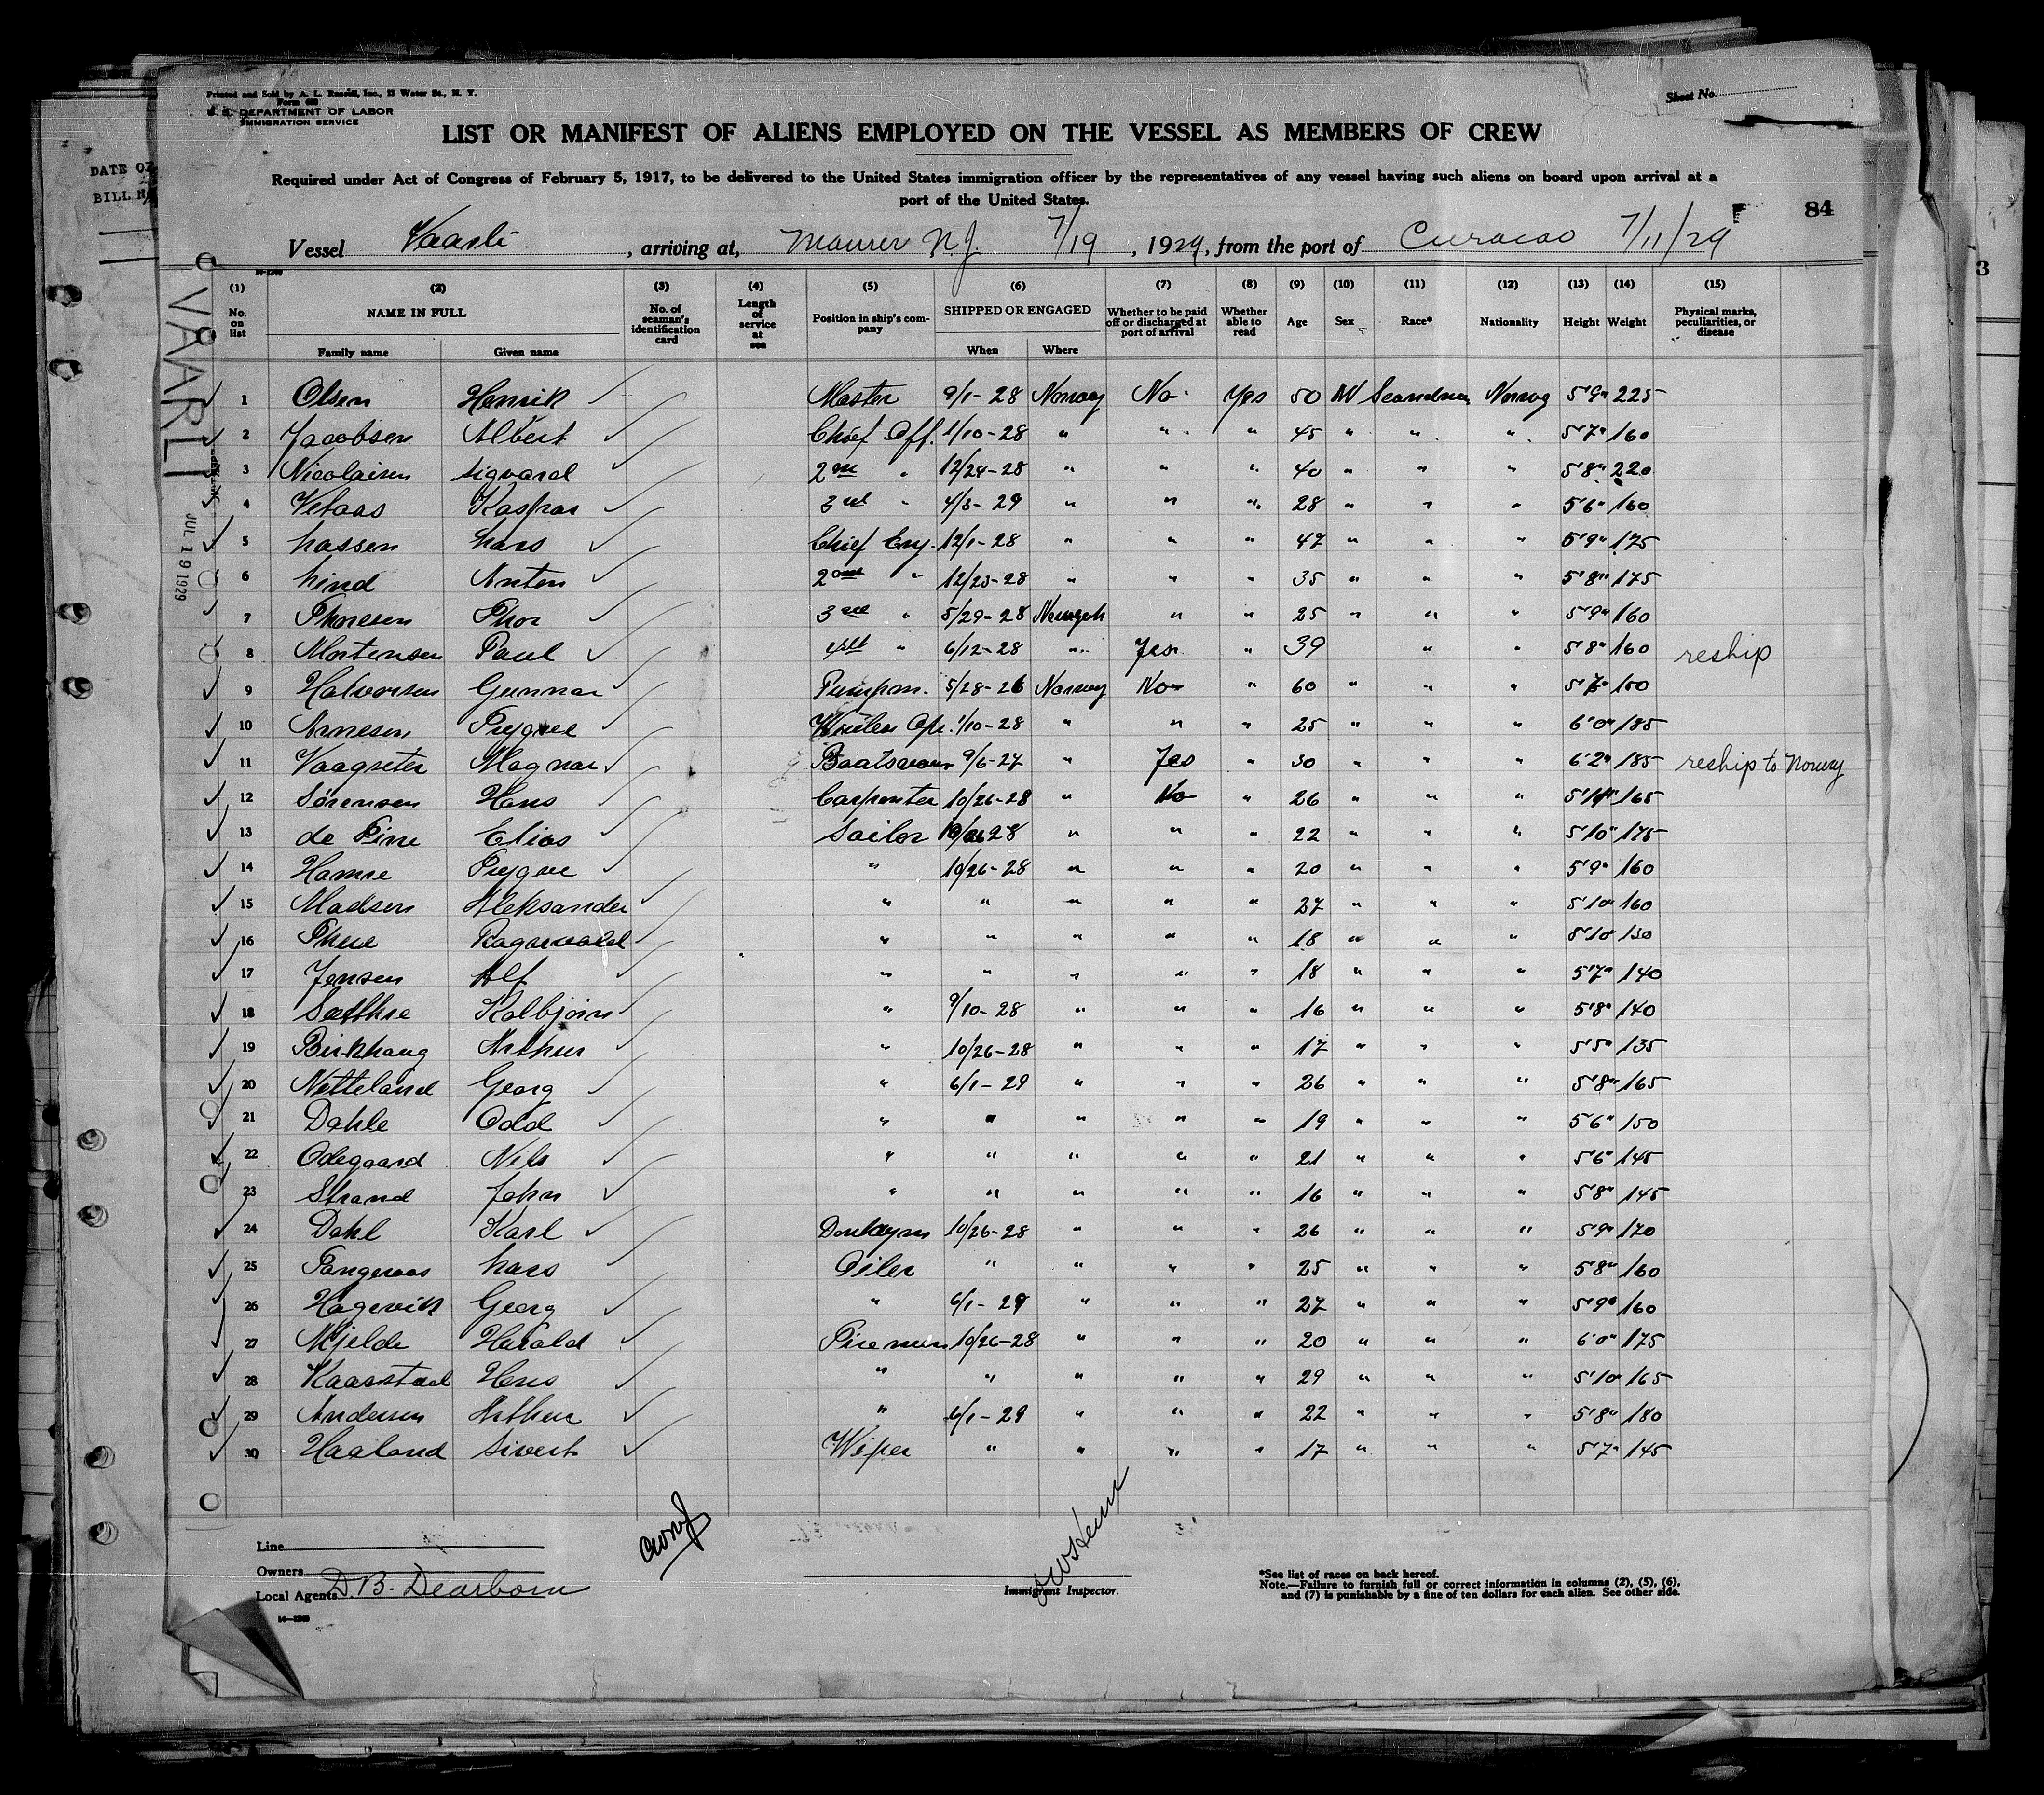 Printed and Sold by A. L. Russell, Inc., 13 Water St., N. Y.
Form 689
U. S. DEPARTMENT OF LABOR
IMMIGRATION SERVICE
Sheet No.
LIST OR MANIFEST OF ALIENS EMPLOYED ON THE VESSEL AS MEMBERS OF CREW
DATE OF
BILL
Required under Act of Congress of February 5, 1917, to be delivered to the United States immigration officer by the representatives of any vessel having such aliens on board upon arrival at a
port of the United States.
84
Vessel Vaarli, arriving at, Maurer N.J. 7/19, 1929, from the port of Curacao 7/11/29
VAARLI
JUL 19 1929
3
(1) No. on list (2) NAME IN FULL Family name Given name (3) No. of seaman's identification card (4) Length of service at sea (5) Position in ship's company (6) SHIPPED OR ENGAGED When Where (7) Whether to be paid off or discharged at port of arrival (8) Whether able to read (9) Age (10) Sex (11) Race* (12) Nationality (13) Height (14) Weight (15) Physical marks, peculiarities, or disease
1 Olsen Henrik Master 9/1-28 Norway No Yes 50 M Scandnav Norweg 5'9" 225
2 Jacobsen Albert Chief Off. 1/10-28 " " " 45 " " " 5'7" 160
3 Nicolaisen Sigvard 2nd " 12/24-28 " " " 40 " " " 5'8" 220
4 Vetaas Kaspar 3rd " 4/3-29 " " " 28 " " " 5'6" 160
5 Lassen Lars Chief Eng. 12/1-28 " " " 47 " " " 5'9" 175
6 Lind Anton 2nd " 12/23-28 " " " 35 " " " 5'8" 175
7 Thoresen Thor 3rd " 5/29-28 " " 25 " " " 5'9" 160
8 Mortensen Paul 4th " 6/12-28 " Yes " 39 " " 5'8" 160 reship
9 Halvorsen Gunnar Pumpm. 5/28-26 Norway No " 60 " " " 5'7" 150
10 Arnesen Trygve Wireless Op. 1/10-28 " " " 25 " " " 6'0" 185
11 Vaagseter Magnar Baatsman 9/6-27 " Yes " 30 " " " 6'2" 185 reship to Norway
12 Sørensen Hans Carpenter 10/26-28 " No " 26 " " " 165
13 de Fine Elias Sailor 28 " " " 22 " " " 5'10" 175
14 Hamre Trygve " 10/26-28 " " " 20 " " " 5'9" 160
15 Madsen Aleksander " " " " " 27 " " " 5'10" 160
16 Thue Ragnvald " " " " " 18 " " " 5'10 150
17 Jensen Alf " " " " " 18 " " " 5'7" 140
18 Sætthre Kolbjørn " 9/10-28 " " " 16 " " " 5'8" 140
19 Birkhaug Arthur " 10/26-28 " " " 17 " " " 5'5" 135
20 Netteland Georg " 6/1-29 " " " 26 " " " 5'8" 165
21 Dahle Odd " " " " " 19 " " " 5'6" 150
22 Odegaard Nils " " " " " 21 " " " 5'6" 145
23 Strand John " " " " " 16 " " " 5'8" 145
24 Dahl Karl Donkeym 10/26-28 " " " 26 " " " 5'9" 170
25 Tangeraas Lars Oiler " " " " 25 " " " 5'8" 160
26 Hagevik Georg " 6/1-29 " " " 27 " " " 5'9" 160
27 Mjelde Harald Firemen 10/26-28 " " " 20 " " " 6'0" 175
28 Kaarstad Hans " " " " " 29 " " " 5'10 165
29 Andersen Arthur " 6/1-29 " " " 22 " " " 5'8" 180
30 Haaland Sivert Wiper " " " " 17 " " " 5'7" 145
Line
Owners
Local Agents D.B. Dearborn
14—1260
Immigrant Inspector.
*See list of races on back hereof.
Note.—Failure to furnish full or correct information in columns (2), (5), (6),
and (7) is punishable by a fine of ten dollars for each alien. See other side.